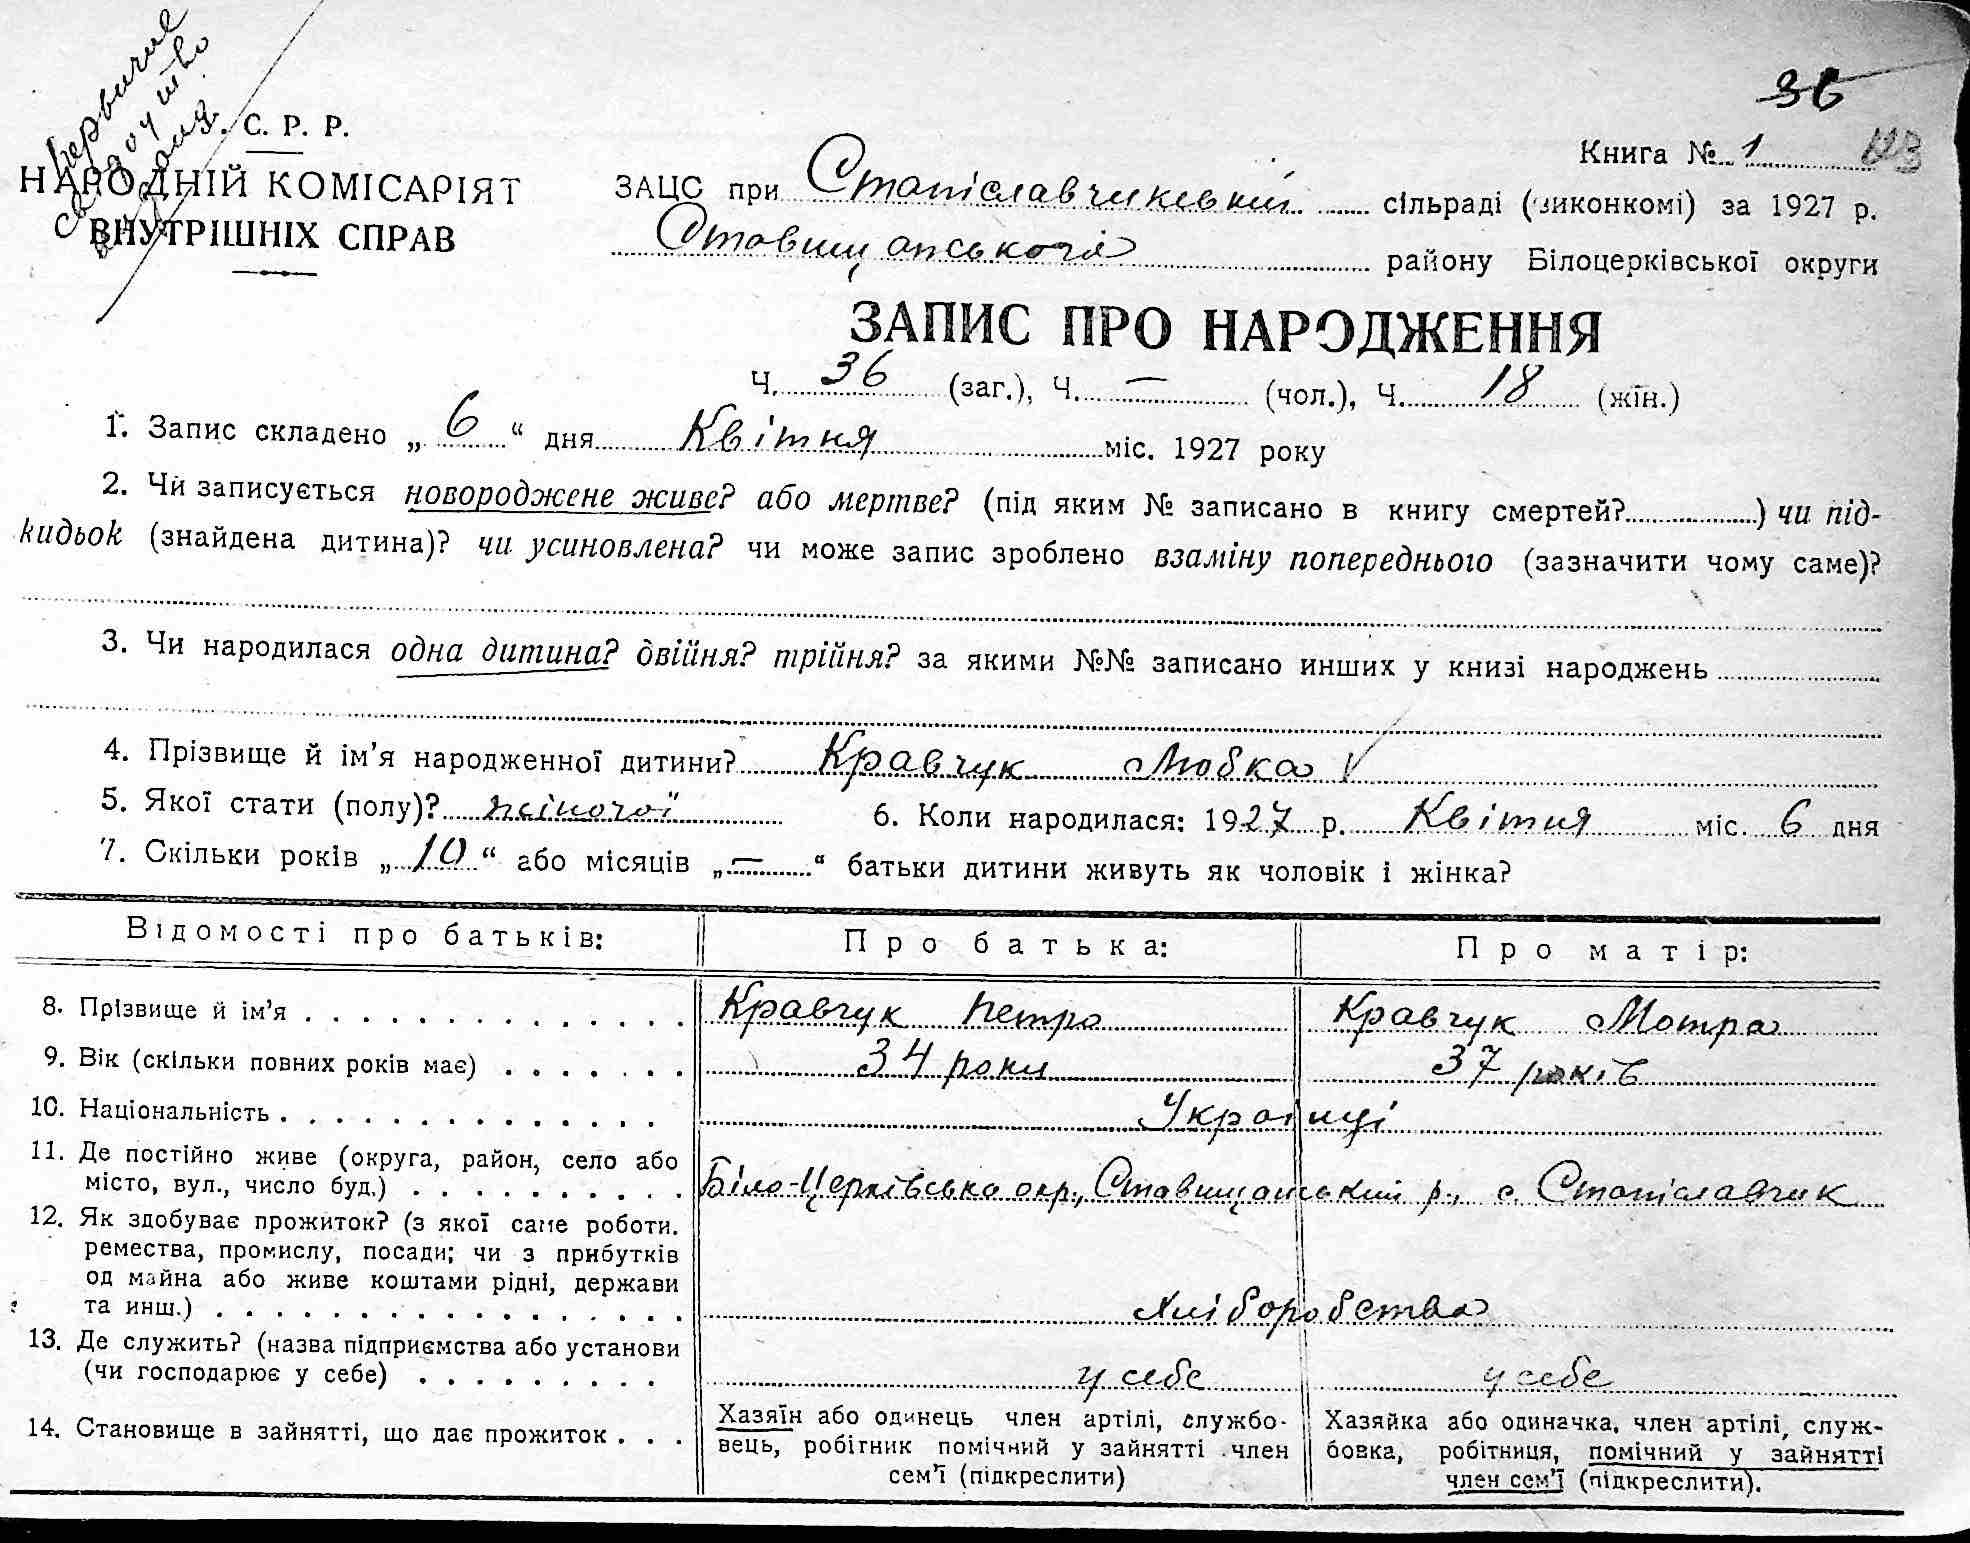 Первичне
свідоцтво
видано
У. С. Р. Р.
НАРОДНІЙ КОМІСАРІЯТ
ВНУТРІШНІХ СПРАВ
36
Книга № 1
ЗАЦС при Станіславчиківській сільраді (виконкомі) за 1927 р.
Ставищанського району Білоцерківської округи
ЗАПИС ПРО НАРОДЖЕННЯ
Ч. 36 (заг.), Ч. — (чол.), Ч. 18 (жін.)
1. Запис складено „6“ дня Квітня міс. 1927 року
2. Чи записується новороджене живе? або мертве? (під яким № записано в книгу смертей?) чи під-
кидьок (знайдена дитина)? чи усиновлена? чи може запис зроблено взаміну попереднього (зазначити чому саме)?
3. Чи народилася одна дитина? двійня? трійня? за якими №№ записано инших у книзі народжень
4. Прізвище й ім’я народженної дитини? Кравчук Любка
5. Якої стати (полу)? жіночої 6. Коли народилася: 1927 р. Квітня міс. 6 дня
7. Скільки років „10“ або місяців „—“ батьки дитини живуть як чоловік і жінка?
Відомості про батьків: Про батька: Про матір:
8. Прізвище й ім’я Кравчук Петро Кравчук Мотра
9. Вік (скільки повних років має) 34 роки 37 років
10. Національність Українці
11. Де постійно живе (округа, район, село або
місто, вул., число буд.) Біло-Церківська окр., Ставищанський р., с. Станіславчик
12. Як здобуває прожиток? (з якої саме роботи.
ремества, промислу, посади; чи з прибутків
од майна або живе коштами рідні, держави
та инш.) Хліборобства
13. Де служить? (назва підприємства або установи
(чи господарює у себе) у себе у себе
14. Становище в зайнятті, що дає прожиток
Хазяїн або одинець член артілі, службо-
вець, робітник помічний у зайнятті член
сем’ї (підкреслити)
Хазяйка або одиначка, член артілі, служ-
бовка, робітниця, помічний у зайнятті
член сем’ї (підкреслити).